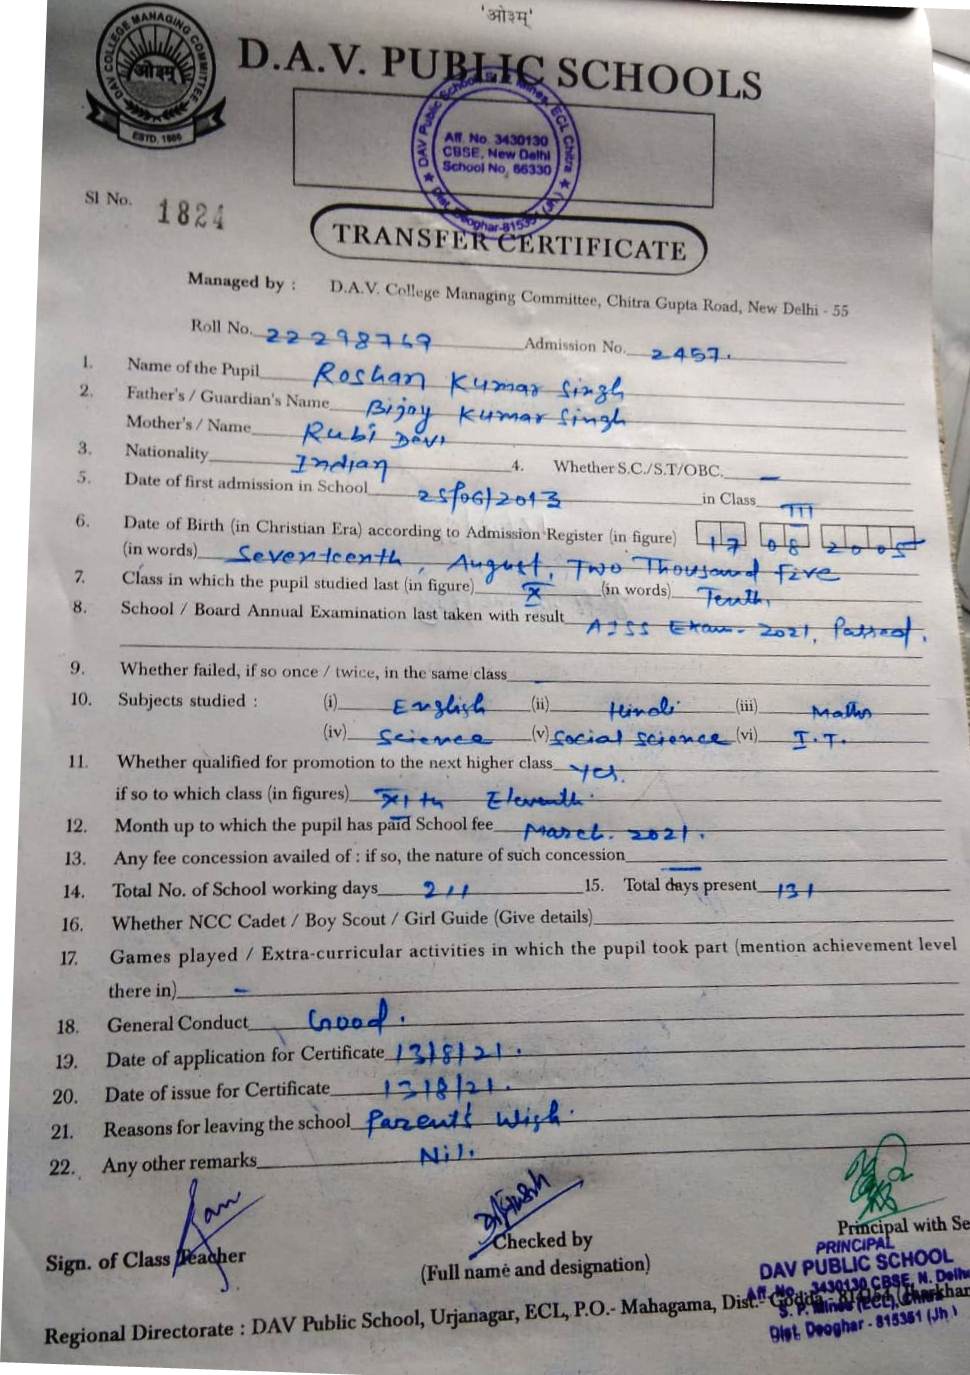 'ओ३म्'
DAV COLLEGE MANAGING COMMITTEE
ओ३म्
ESTD. 1886
D.A.V. PUBLIC SCHOOLS
DAV Public School S. P. Mines, ECL Chitra
Aff. No. 3430130
CBSE, New Delhi
School No. 66330
Dist. Deoghar-815351 (Jh)
Sl No. 1824
TRANSFER CERTIFICATE
Managed by : D.A.V. College Managing Committee, Chitra Gupta Road, New Delhi - 55
Roll No. 22298769 Admission No. 2457.
1. Name of the Pupil Roshan Kumar Singh
2. Father's / Guardian's Name Bijoy Kumar Singh
Mother's / Name Rubi Devi
3. Nationality Indian 4. Whether S.C./S.T/OBC. —
5. Date of first admission in School 25/06/2013 in Class III
6. Date of Birth (in Christian Era) according to Admission Register (in figure) 17 08 2005
(in words) Seventeenth, August, Two Thousand Five
7. Class in which the pupil studied last (in figure) X (in words) Tenth.
8. School / Board Annual Examination last taken with result AISS Exam - 2021, Passed.
9. Whether failed, if so once / twice, in the same class —
10. Subjects studied : (i) English (ii) Hindi (iii) Maths
(iv) Science (v) Social Science (vi) I.T.
11. Whether qualified for promotion to the next higher class Yes.
if so to which class (in figures) XI th Eleventh.
12. Month up to which the pupil has paid School fee March. 2021.
13. Any fee concession availed of : if so, the nature of such concession —
14. Total No. of School working days 211 15. Total days present 131
16. Whether NCC Cadet / Boy Scout / Girl Guide (Give details)
17. Games played / Extra-curricular activities in which the pupil took part (mention achievement level
there in) —
18. General Conduct Good.
19. Date of application for Certificate 13/8/21.
20. Date of issue for Certificate 13/8/21.
21. Reasons for leaving the school Parent's Wish.
22. Any other remarks Nil.
Sign. of Class Teacher
Checked by
(Full name and designation)
Principal with Se
PRINCIPAL
DAV PUBLIC SCHOOL
Aff. No. 3430130 CBSE, N. Delhi
S. P. Mines (ECL), Chitra
Dist. Deoghar - 815351 (Jh.)
Regional Directorate : DAV Public School, Urjanagar, ECL, P.O.- Mahagama, Dist.- Godda - 814154 (Jharkhan